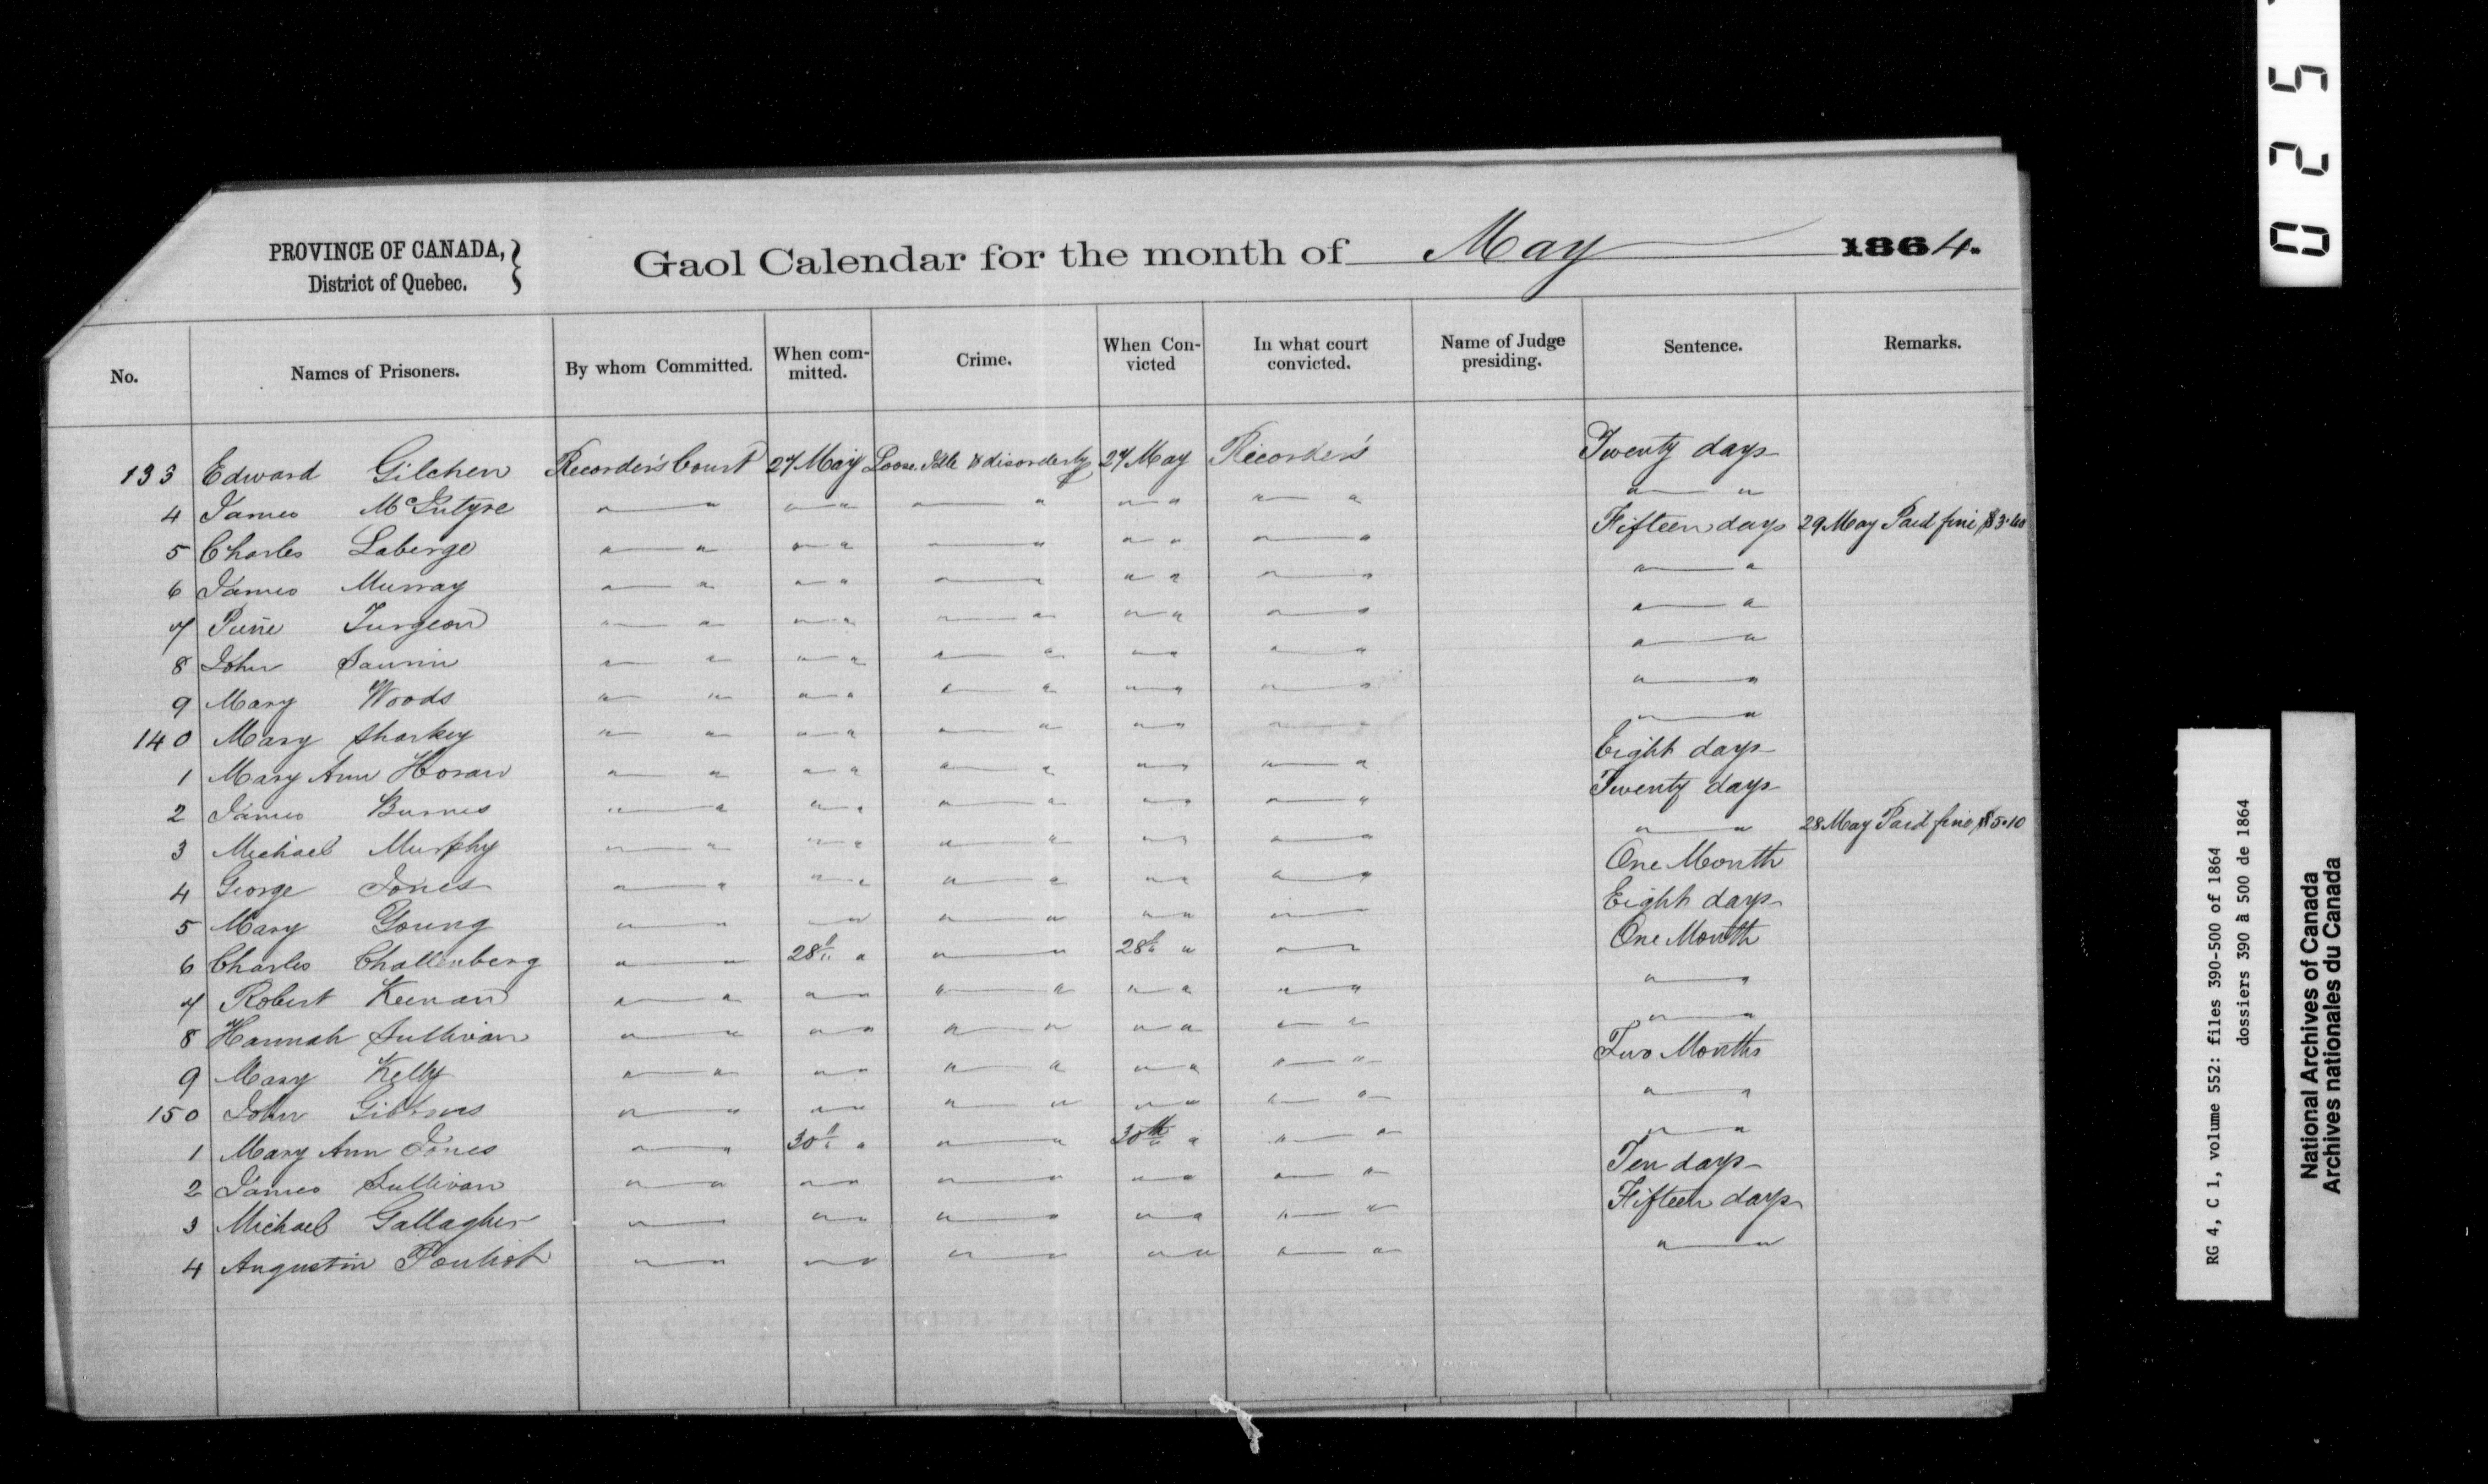 PROVINCE OF CANADA,
District of Quebec.
Gaol Calendar for the month of May 1864.
No. Names of Prisoners. By whom Committed. When committed. Crime. When Convicted In what court convicted. Name of Judge presiding. Sentence. Remarks.
133 Edward Gilchen Recorder's Court 27 May Loose Idle & disorderly 27 May Recorder's Twenty days
4 James McIntyre " " " " " " " " " " " "
5 Charles Laberge " " " " " " " " " " Fifteen days 29 May Paid fine $3.40
6 James Murray " " " " " " " " " " " "
7 Pierre Turgeon " " " " " " " " " " " "
8 John " " " " " " " " " " " "
9 Mary Woods " " " " " " " " " " " "
140 Mary Sharkey " " " " " " " " " " " "
1 Mary Ann Horan " " " " " " " " " " Eight days
2 James Burnes " " " " " " " " " " Twenty days
3 Michael Murphy " " " " " " " " " " " " 28 May Paid fine $5.10
4 George Jones " " " " " " " " " " One Month
5 Mary Young " " " " " " " " " " Eight days
6 Charles Challenberg " " 28th " " " 28th " " " One Month
7 Robert Keenan " " " " " " " " " " " "
8 Hannah Sullivan " " " " " " " " " " " "
9 Mary Kelly " " " " " " " " " " Two Months
150 John Gibbons " " " " " " " " " " " "
1 Mary Ann Jones " " 30th " " " 30th " " " " "
2 James Sullivan " " " " " " " " " " Ten days
3 Michael Gallagher " " " " " " " " " " Fifteen days
4 Augustin Pouliot " " " " " " " " " " " "
025
RG 4, C 1, volume 552: files 390-500 of 1864
dossiers 390 à 500 de 1864
National Archives of Canada
Archives nationales du Canada